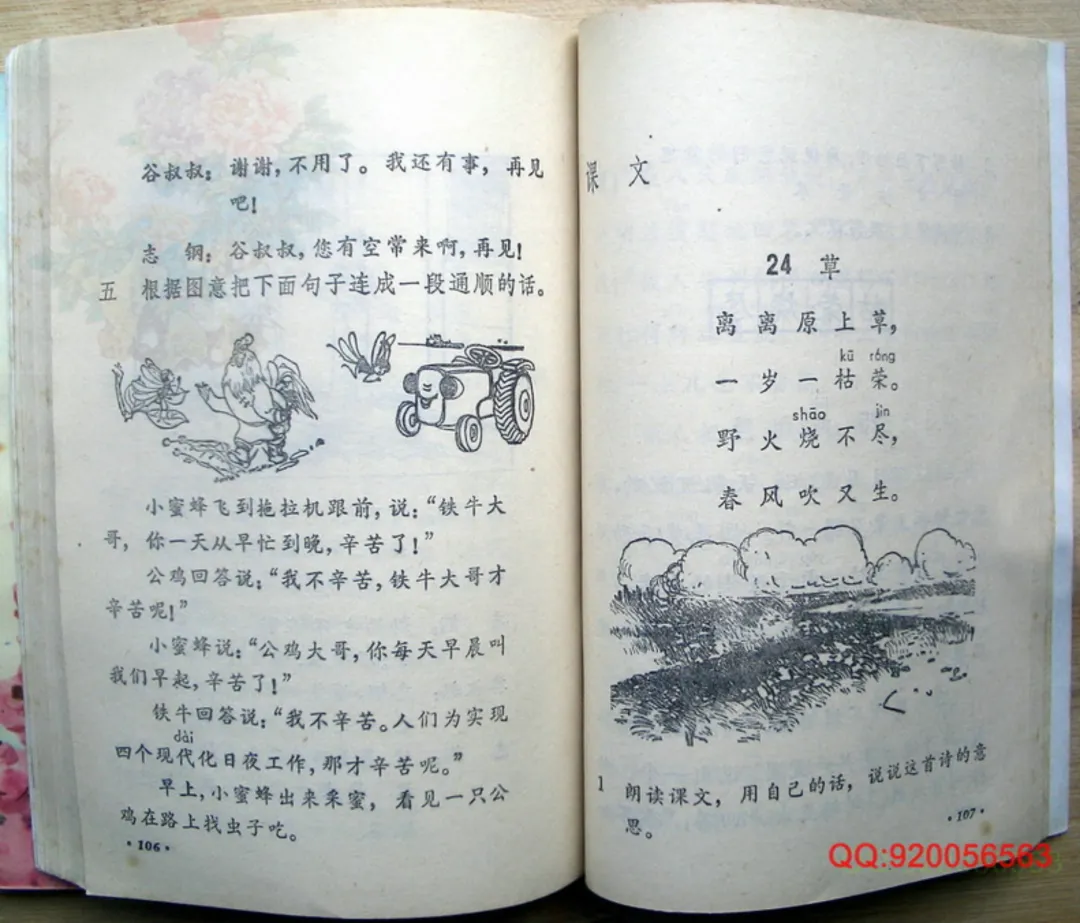 谷叔叔：谢谢，不用了。我还有事，再见
吧！
志 钢：谷叔叔，您有空常来啊，再见！
五 根据图意把下面句子连成一段通顺的话。
小蜜蜂飞到拖拉机跟前，说：“铁牛大
哥，你一天从早忙到晚，辛苦了！”
公鸡回答说：“我不辛苦，铁牛大哥才
辛苦呢！”
小蜜蜂说：“公鸡大哥，你每天早晨叫
我们早起，辛苦了！”
铁牛回答说：“我不辛苦。人们为实现
dài
四个现代化日夜工作，那才辛苦呢。”
早上，小蜜蜂出来采蜜，看见一只公
鸡在路上找虫子吃。
·106·
课 文
24 草
离离原上草，
kū róng
一岁一枯荣。
shāo jìn
野火烧不尽，
春风吹又生。
1 朗读课文，用自己的话，说说这首诗的意
思。
·107·
QQ:920056563